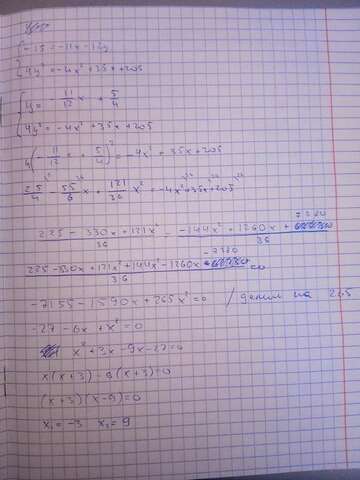 -15 = -11x - 12y
4y² = -4x² + 35x + 205
y = - 11/12 x + 5/4
4y² = -4x² + 35x + 205
4(- 11/12 x + 5/4)² = -4x² + 35x + 205
25/4 - 55/6 x + 121/36 x² = -4x² + 35x + 205
225 - 330x + 121x² / 36 = -144x² + 1260x + 7380 / 36
225 - 330x + 121x² + 144x² - 1260x - 7380 / 36 = 0
-7155 - 1590x + 265x² = 0 / делим на 265
-27 - 6x + x² = 0
x² + 3x - 9x - 27 = 0
x(x+3) - 9(x+3) = 0
(x+3)(x-9) = 0
x₁ = -3 x₂ = 9